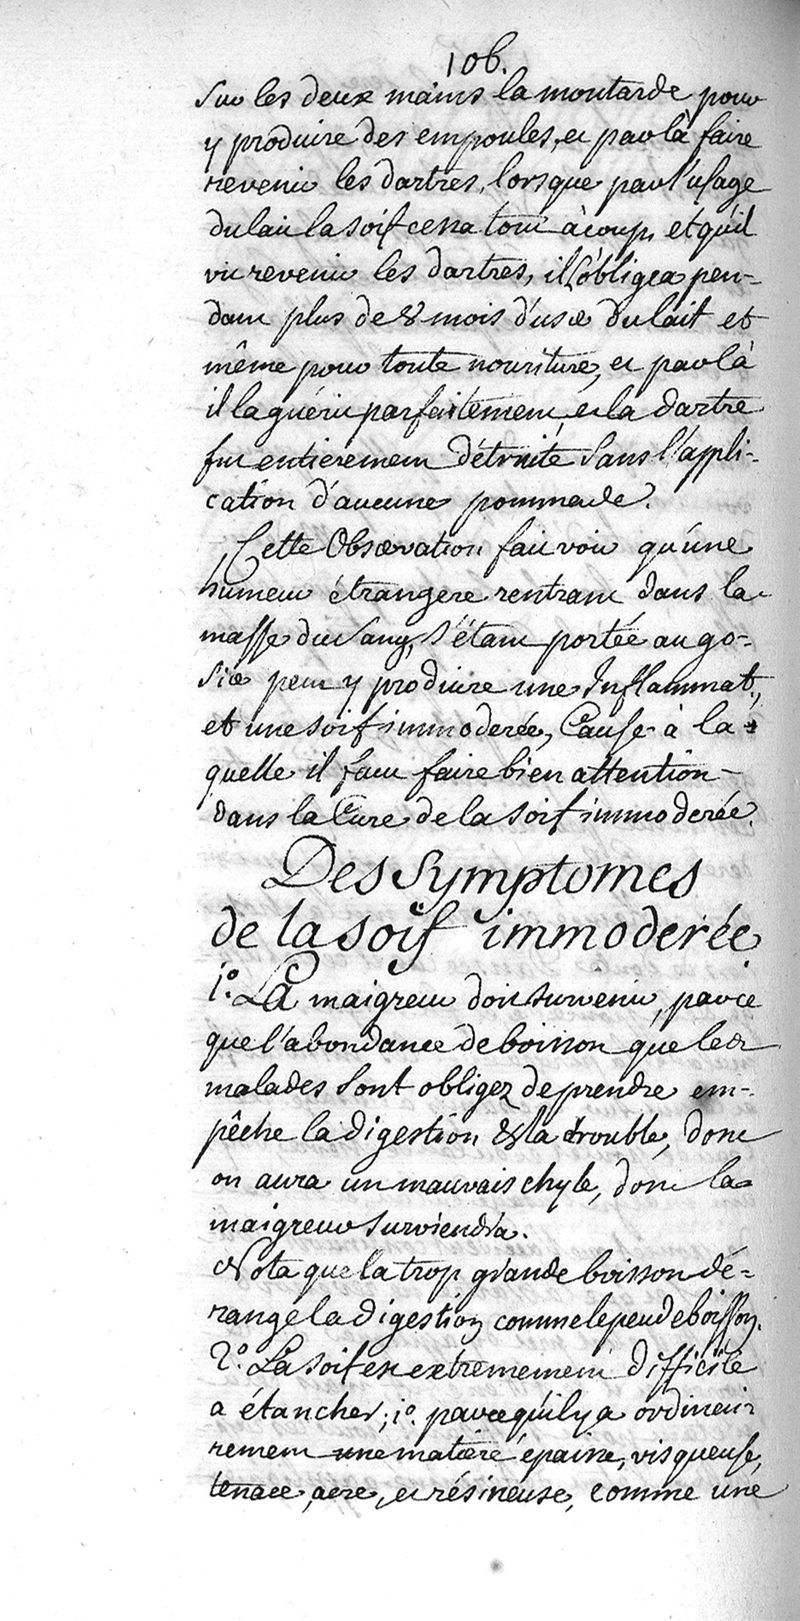 106.
sur les deux mains la moutarde pour
y produire des empoules, et par là faire
revenir les dartres, lorsque par l'usage
du lait la soif cessa tout à coup, et qu'il
vit revenir les dartres, il l'obligea pen-
dant plus de 8 mois d'user du lait et
même pour toute nourriture, et par là
il la guérit parfaitement, et la dartre
fut entierement détruite sans l'appli-
cation d'aucune pommade.
Cette Observation fait voir qu'une
humeur étrangere rentrant dans la
masse du sang, s'étant portée au go-
sier peut y produire une Inflammat.,
et une soif immoderée, Cause à la
quelle il faut faire bien attention
dans la Cure de la soif immoderée.
Des Symptomes
de la soif immoderée
1.º La maigreur doit survenir, parce
que l'abondance de boisson que les
malades sont obligez de prendre em-
pêche la digestion & la trouble, donc
on aura un mauvais chyle, donc la
maigreur surviendra.
Nota que la trop grande boisson dé-
range la digestion comme le peu de boisson.
2.º La soif est extremement difficile
a étancher; 1.º parce qu'il y a ordinai-
rement une matiere épaisse, visqueuse,
tenace, acre, et résineuse, comme une